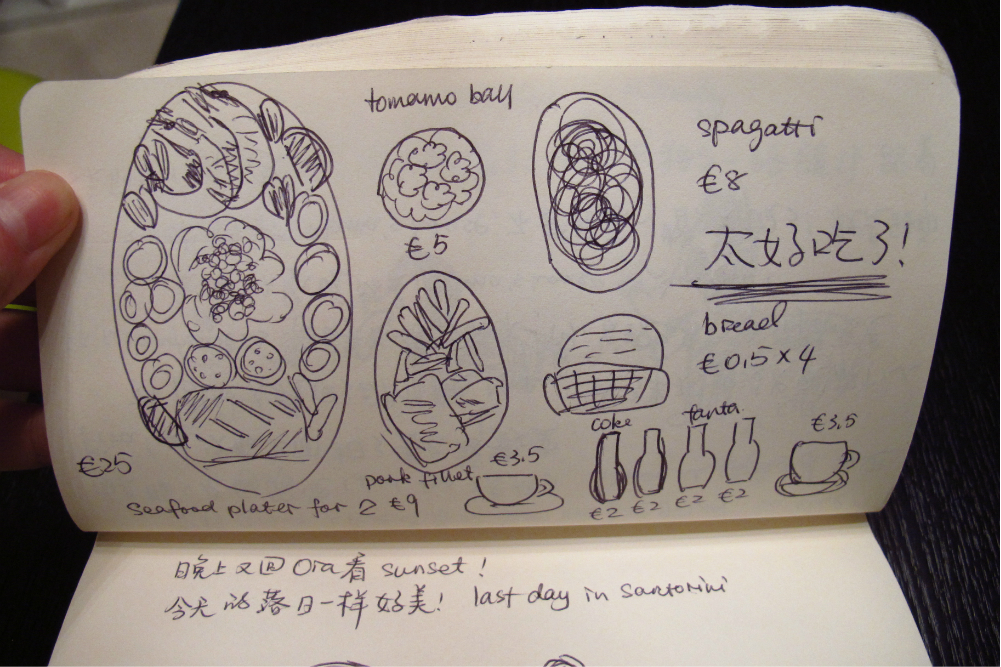 tomamo ball
€5
spagatti
€8
太好吃了!
bread
€0.5×4
coke
fanta
€2 €2 €2 €2
€3.5
€3.5
pork fillet
€9
€25
seafood plater for 2
晚上又回Ora看 sunset!
今天的落日一样好美! last day in santorini